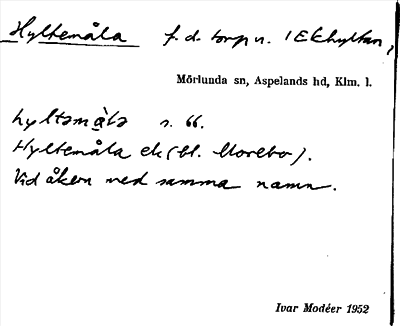 Hyltemåla f.d. torp n. i Ekhyltan,
Mörlunda sn, Aspelands hd, Klm. l.
hyltəmå̀lə s. 66.
Hyltemåla ek (bl. Morebo).
Vid åkern med samma namn.
Ivar Modéer 1952